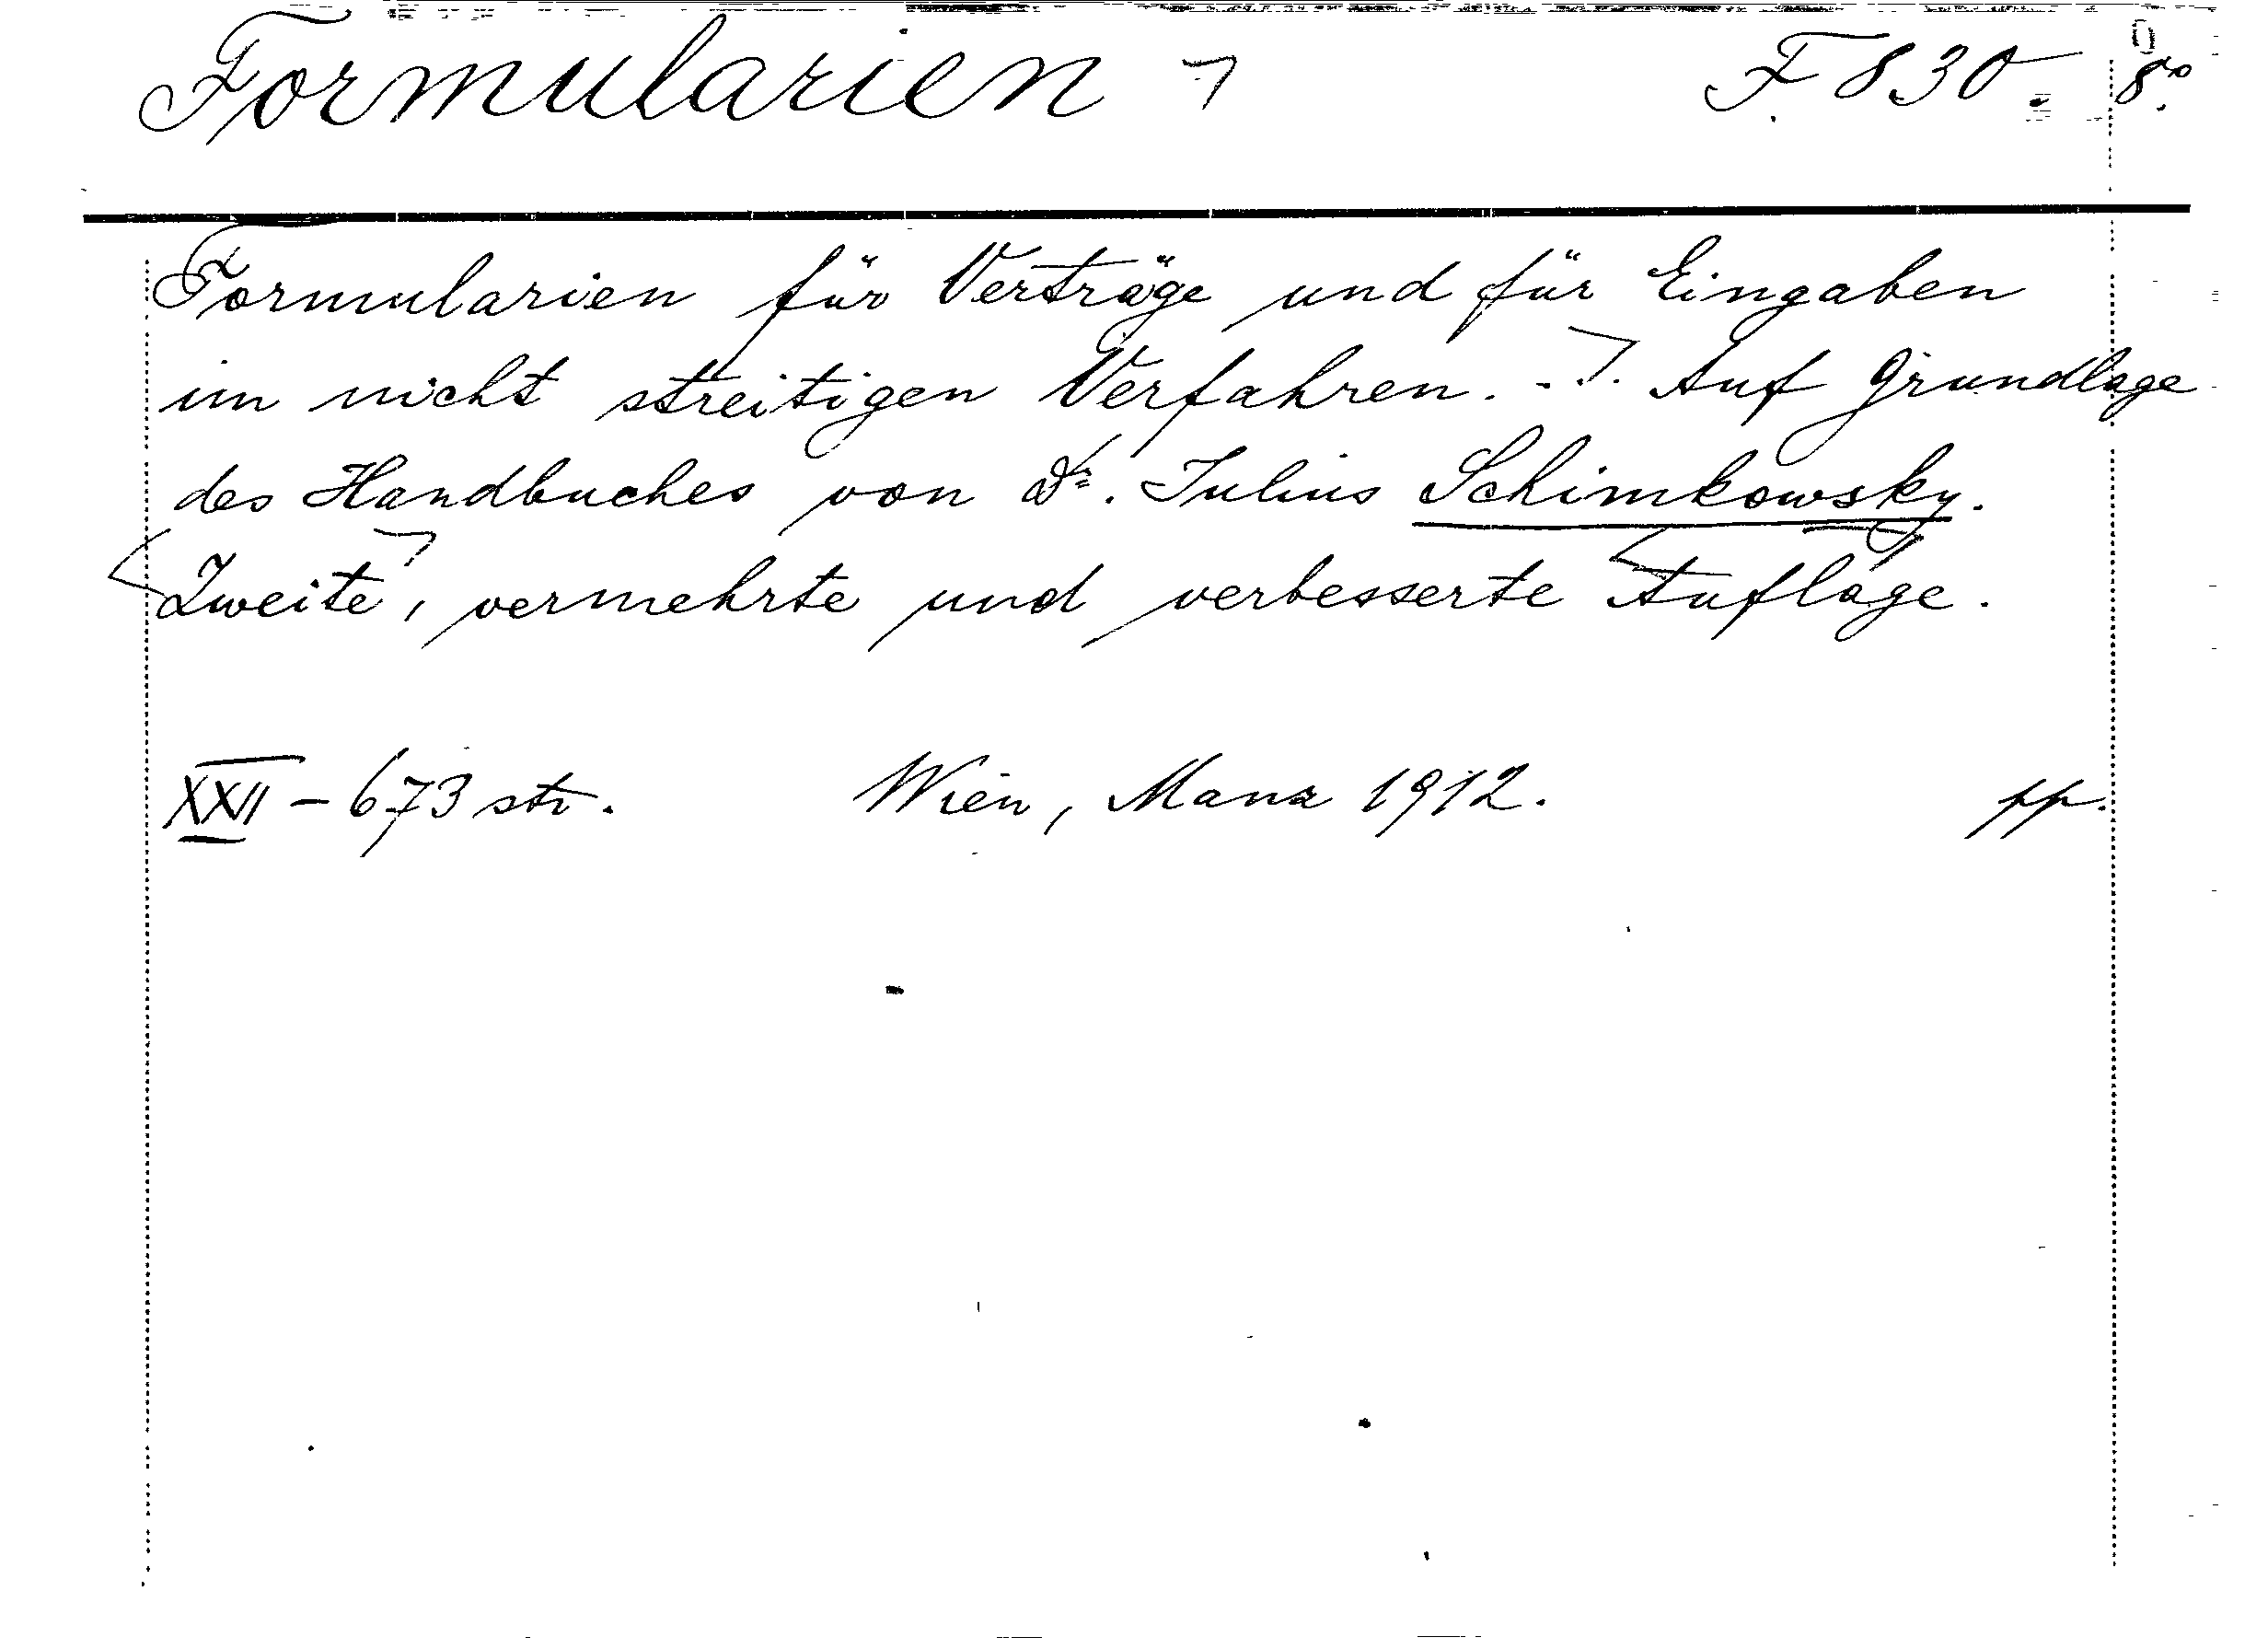 Formularien ¬ F 830. 8°.
Formularien für Verträge und für Eingaben
im nicht streitigen Verfahren. - . ¬ . Auf Grundlage
des Handbuches von Dr. Julius Schimkowsky.
Zweite, vermehrte und verbesserte Auflage.
XXII - 673 str. Wien, Manz 1912. pp.